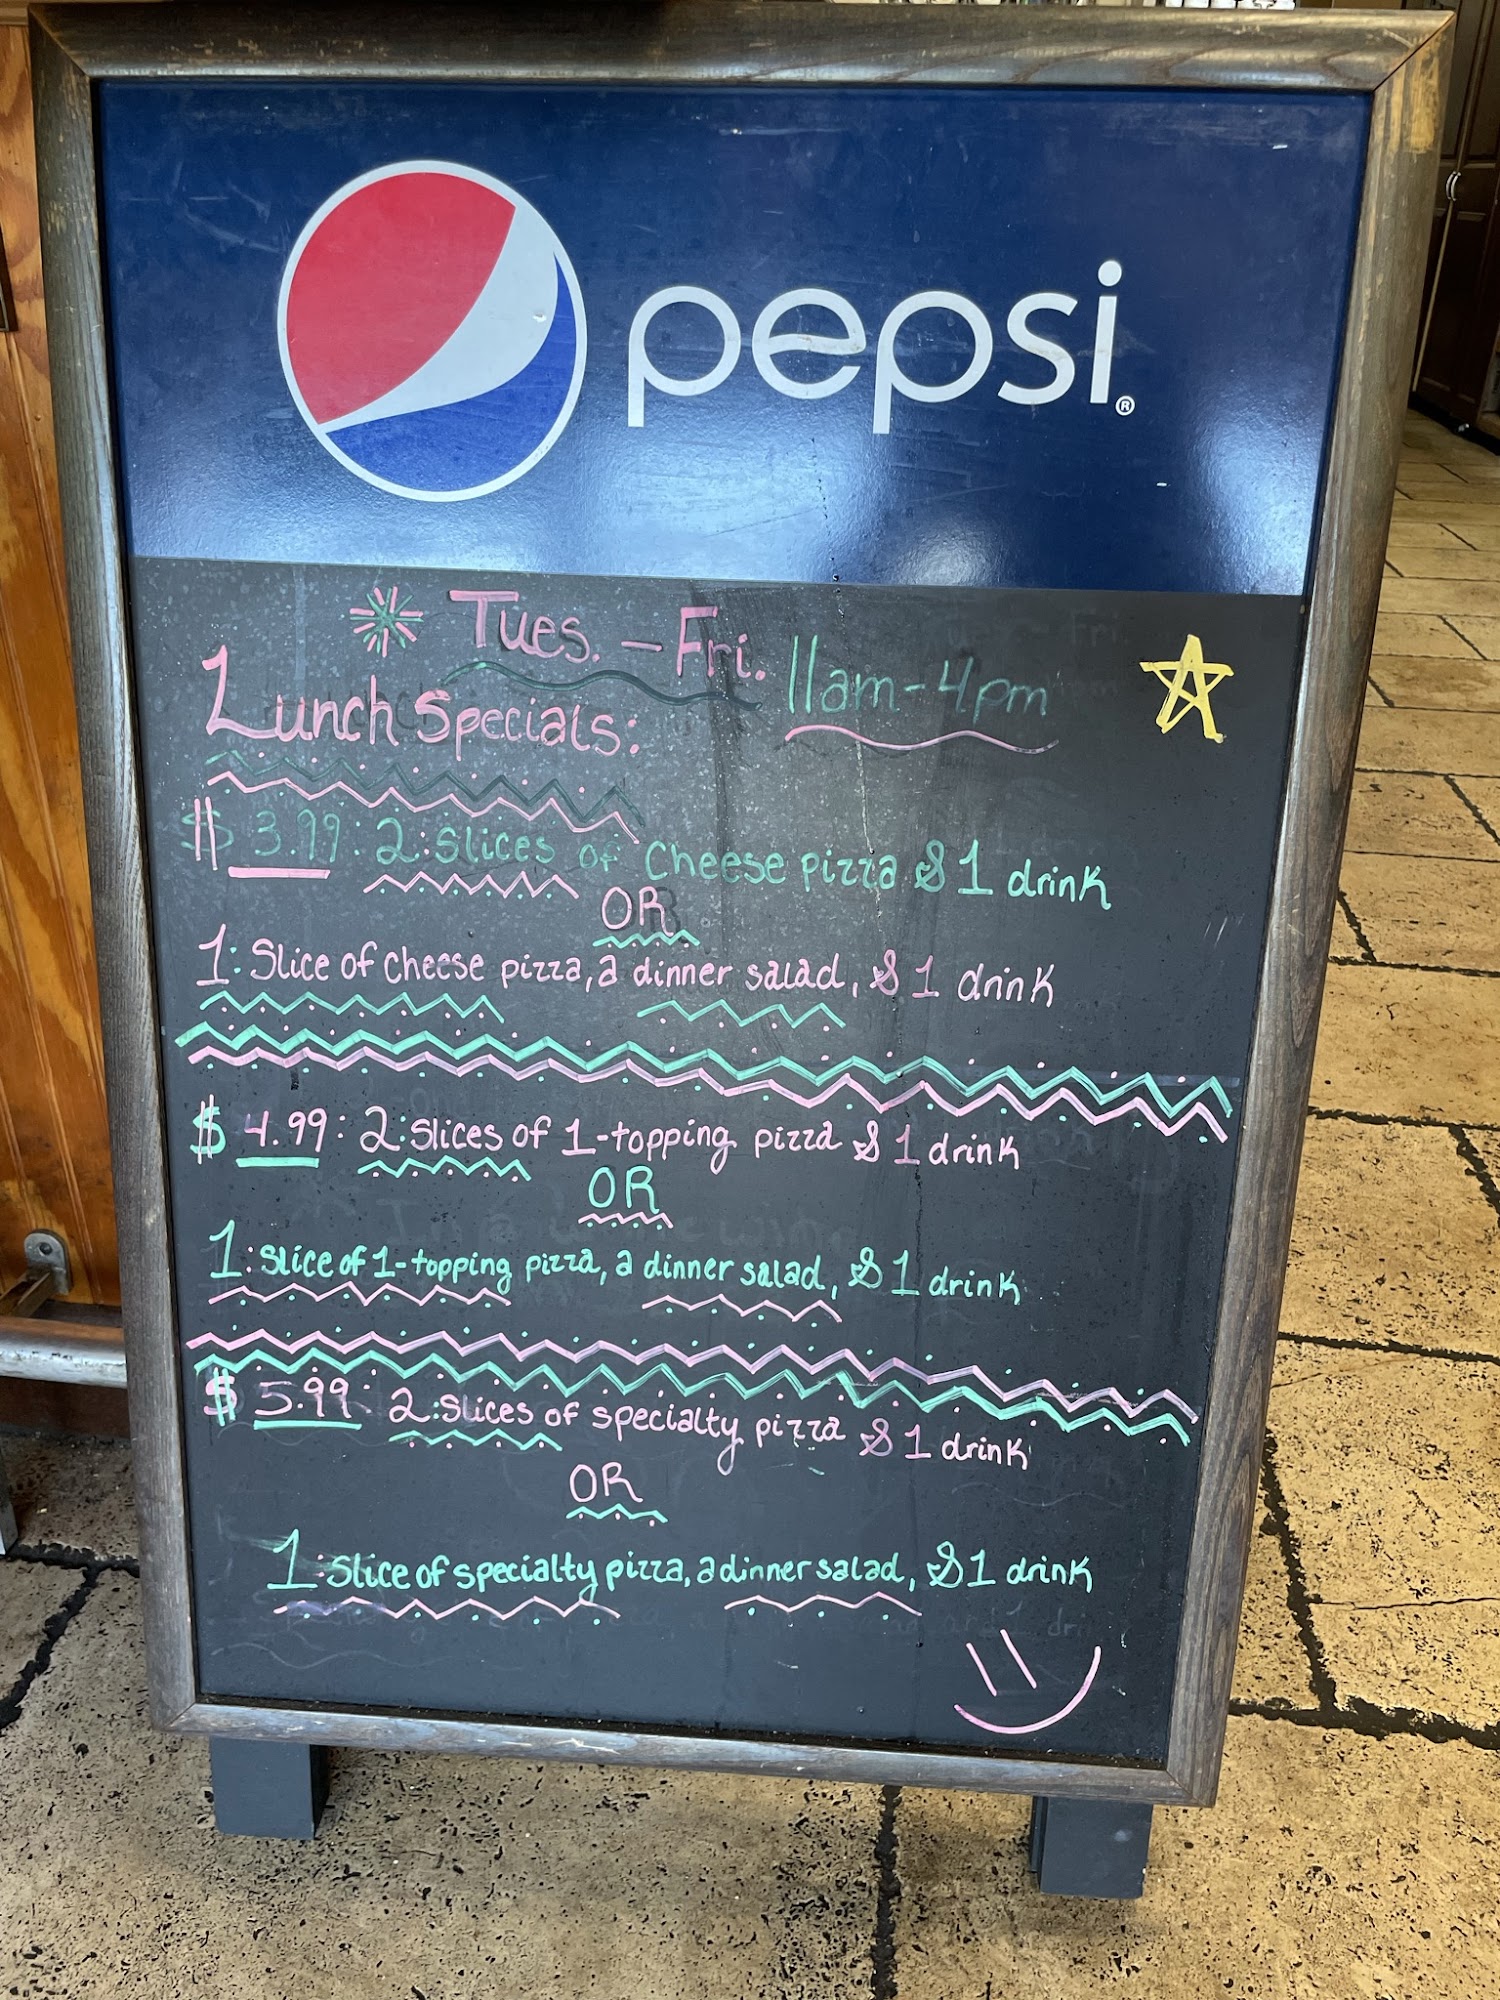 pepsi®
Tues. - Fri. 11am-4pm
Lunch Specials:
$3.99: 2: Slices of Cheese pizza & 1 drink
OR
1: Slice of cheese pizza, a dinner salad, & 1 drink
$4.99: 2: Slices of 1-topping pizza & 1 drink
OR
1: Slice of 1-topping pizza, a dinner salad, & 1 drink
$5.99: 2: Slices of specialty pizza & 1 drink
OR
1: Slice of specialty pizza, a dinner salad, & 1 drink